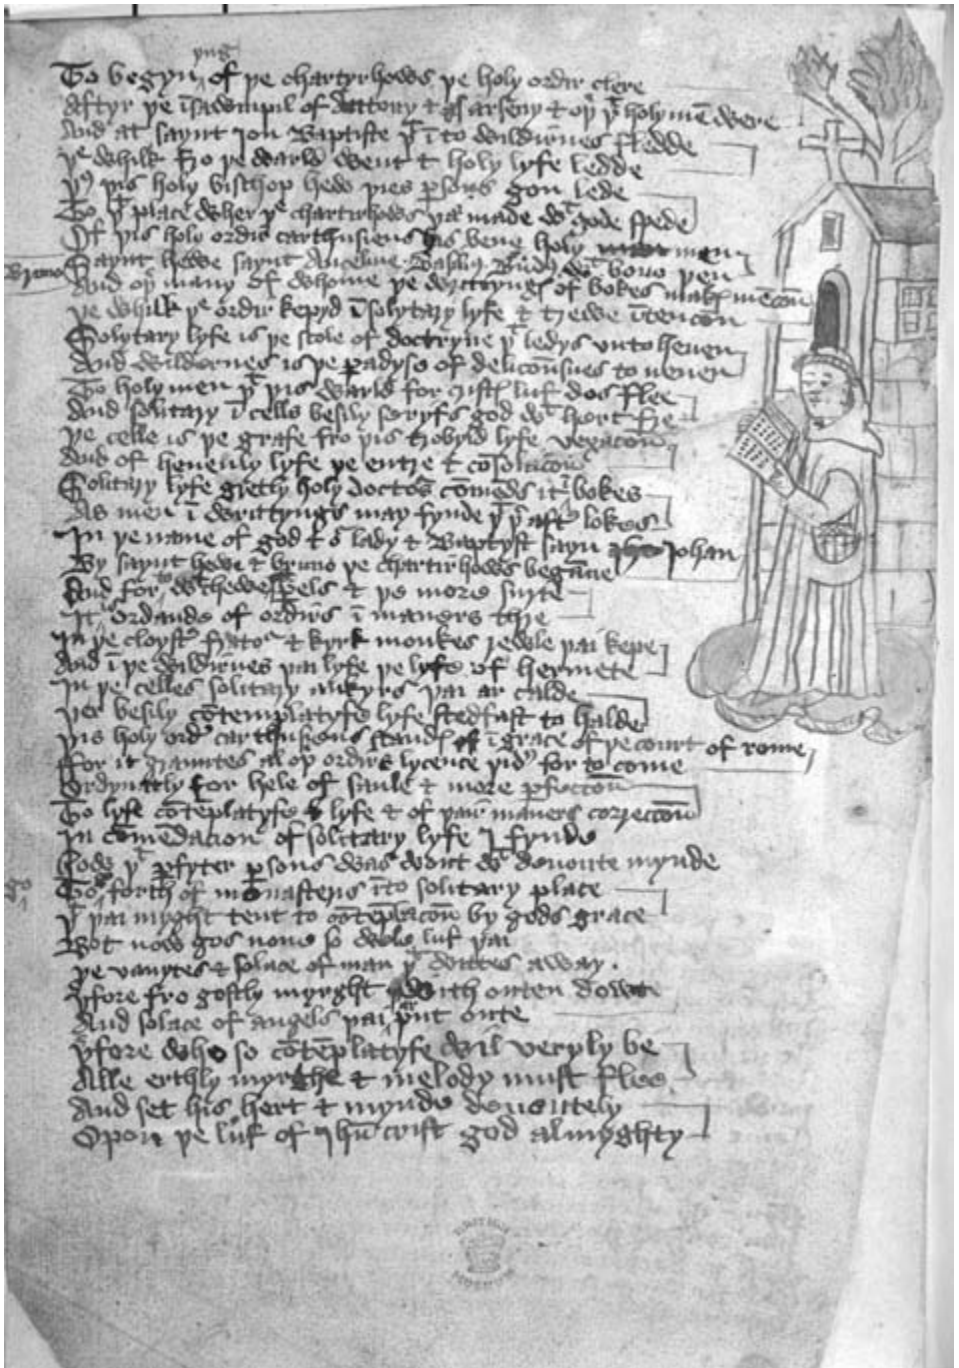 To begyn yng of þe chartyrhows þe holy ordir clere
Aftyr þe of Antony & of Arseny & holy mē were
And at saynt Jon Baptiste þt ī to wildirnes fledde
þe whilk fro þe warld went & holy lyfe ledde
þis holy bisschop hew þies psons gon lede
To þt place wher þe chartirhows was made wt gode spede
Of þis holy ordir carthusiens has bene holy men
Saynt hewe saynt Ancelme Basiliꝰ wt bono pen
And oþr many of whome þe wrytyng of bokes makes mēcōn
þe whilk þe ordir kepyd ī solytary lyfe & trewe ītencōn
Solytary lyfe is þe scole of doctryne þt ledys vnto heuen
And wildernes is þe padyse of deliciousnes to neuen
To holy men þt þis warld for luf dos flee
And solitary ī cells besily seryfs god wt hert fre
þe celle is þe grafe fro þis trobyld lyfe vexacōn
And of heuenly lyfe þe entre & cōsolacōn
Solitary lyfe gretly holy doctors cōmēds ī þr bokes
As men ī writtyngs may fynde þt aftr lokes
In þe name of god & lady & Baptyst sayn Johan
By saynt hewe & bruno þe chartirhows begāne
And for & þe more suyte
It is ordande of ordirs ī maners thre
In þe cloystr & kyrk monkes rewle þai kepe
And ī þe wildirnes þai lyfe þe lyfe of hermete
In þe celles solitary ankyrs þai ar calde
þer besily cōtemplatyfe lyfe stedfast to halde
þis holy ordr carthusiens standes ī grace of þe court of rome
ffor it grauntes al oþr ordirs lycence for to come
Ordynatly for hele of saule & more pfeccōn
To lyfe cōteplatyfe lyfe & of þair maners correccōn
In cōmēdacion of solitary lyfe I fynde
how þt pfyter psons was wont wt deuoute mynde
To go forth of monasterys īto solitary place
þt þai myght tent to cōteplacōn by gods grace
Bot now gos none so wele luf þai
þe vanytes & solace of man þt wittes away.
þfore fro gostly myrght with outen dowte
And solace of angels þai ar pᵗ oute
þfore who so cōtēplatyfe wil veryly be
Alle erthly myrthe & melody must flee
And set his hert & mynde deuoutely
Opon þe luf of Ihū crist god almyghty